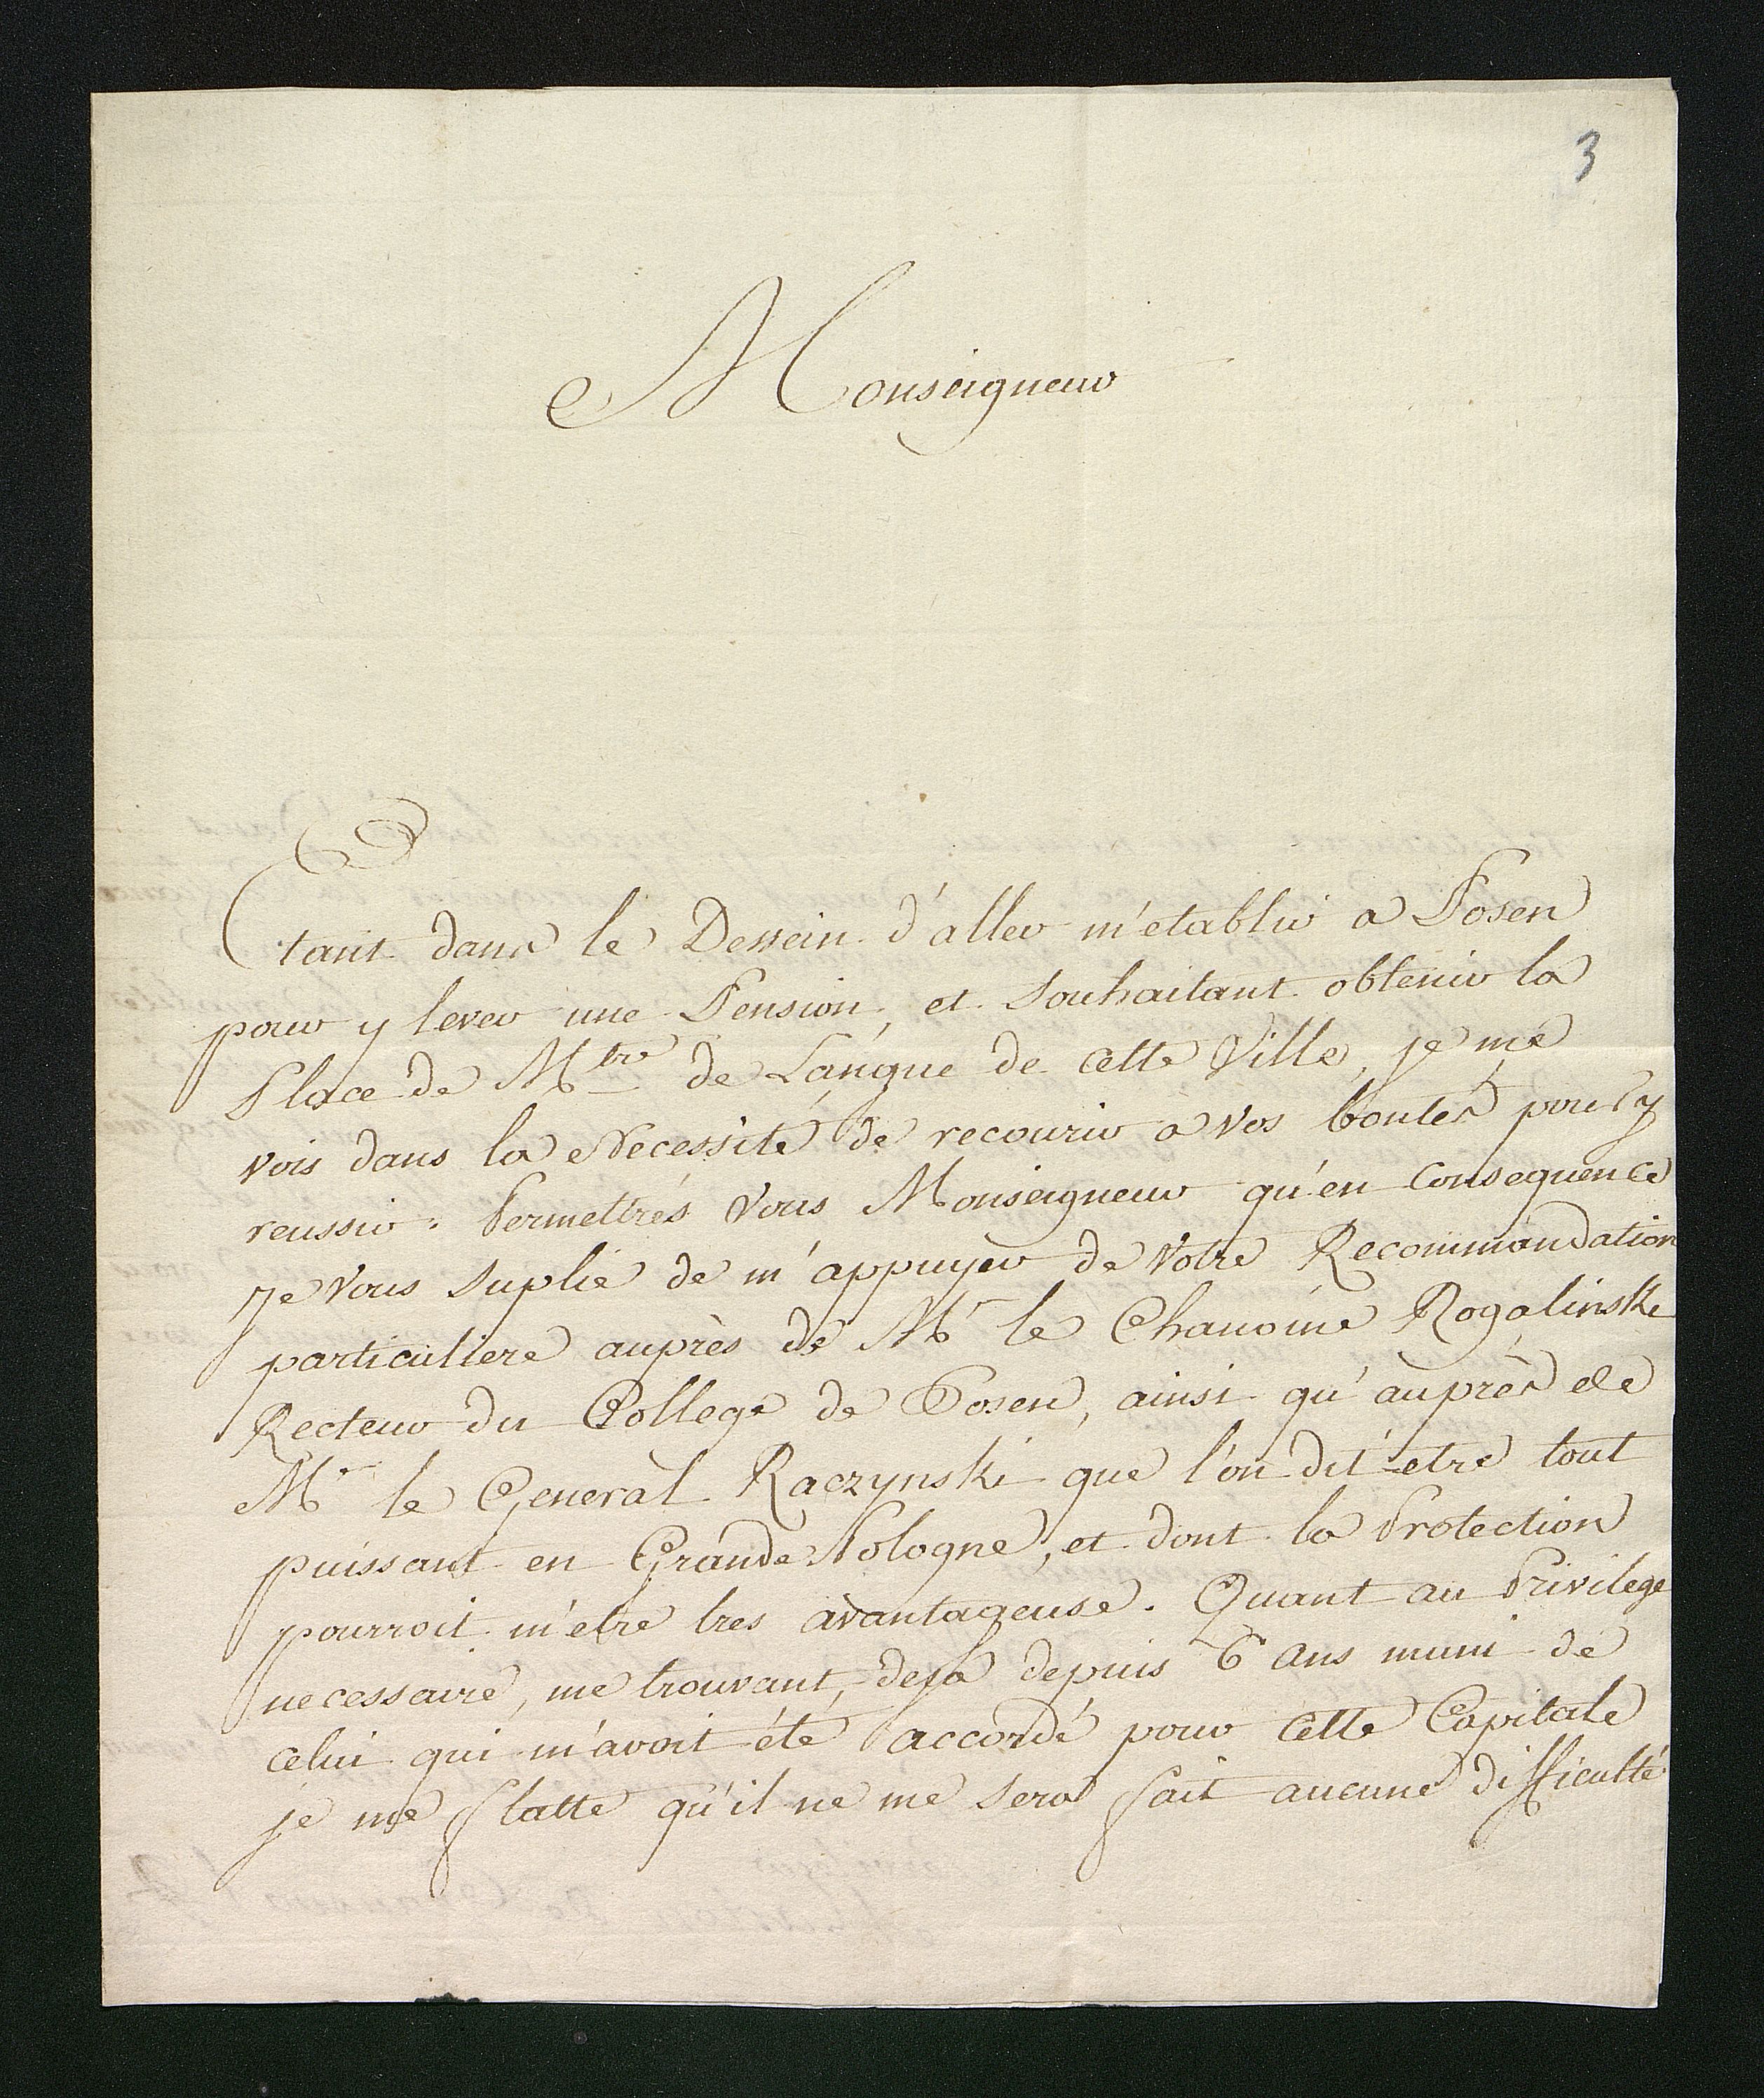 3
Monseigneur
Etant dans le Dessein d'aller m'etablir a Posen
pour y lever une Pension, et souhaitant obtenir la
Place de Mtre de Langue de cette Ville, je me
vois dans la Necessité de recourir a vos bontés pour y
reussir. Permettrés Vous Monseigneur qu'en consequence
je Vous suplie de m'appuyer de Votre Recommandation
particuliere auprès de Mr le Chanoine Rogalinski
Recteur du College de Posen, ainsi qu'auprès de
Mr le General Raczynski que l'on dit etre tout
puissant en Grande Pologne, et dont la Protection
pourroit m'etre tres avantageuse. Quant au Privilege
necessaire, me trouvant, deja depuis 6 ans muni de
celui qui m'avoit été accordé pour cette Capitale
je me flatte qu'il ne me sera fait aucune difficulté